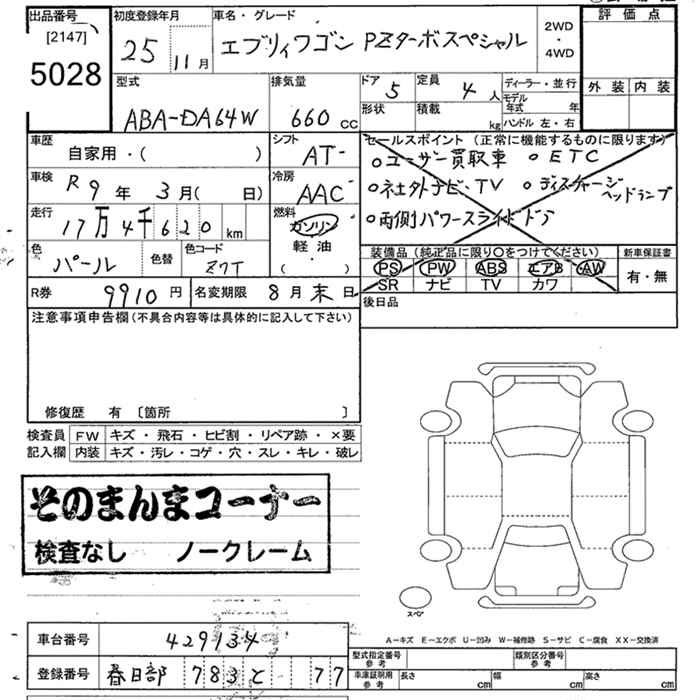 出品番号
[2147]
5028
初度登録年月
25 11月
車名・グレード
エブリィワゴン PZターボスペシャル
2WD
・
4WD
評価点
外装 内装
型式
ABA-DA64W
排気量
660 CC
ドア 5
定員 4 人
形状
積載 kg
ディーラー・並行
モデル年式 年
ハンドル 左・右
車歴
自家用・( )
シフト
AT-
車検
R9年 3月( 日)
冷房
AAC
走行
17万4千620km
燃料
ガソリン
軽油
( )
色
パール
色替
色コード
Z7T
セールスポイント (正常に機能するものに限ります)
○ユーザー買取車 ○ETC
○社外ナビ、TV ○ディスチャージヘッドランプ
○両側パワースライドドア
装備品 (純正品に限り○をつけてください)
PS PW ABS エアB AW
SR ナビ TV カワ
新車保証書
有・無
後日品
R券 9910円
名変期限 8月末日
注意事項申告欄(不具合内容等は具体的に記入して下さい)
修復歴 有 〔箇所 〕
検査員記入欄
FW キズ・飛石・ヒビ割・リペア跡・×要
内装 キズ・汚レ・コゲ・穴・スレ・キレ・破レ
そのまんまコーナー
検査なし ノークレーム
スペア
A-キズ E-エクボ U-凹み W-補修跡 S-サビ C-腐食 XX-交換済
車台番号 429134
登録番号 春日部 783 と 77
型式指定番号 参考
類別区分番号 参考
車庫証明用 参考
長さ cm 幅 cm 高さ cm